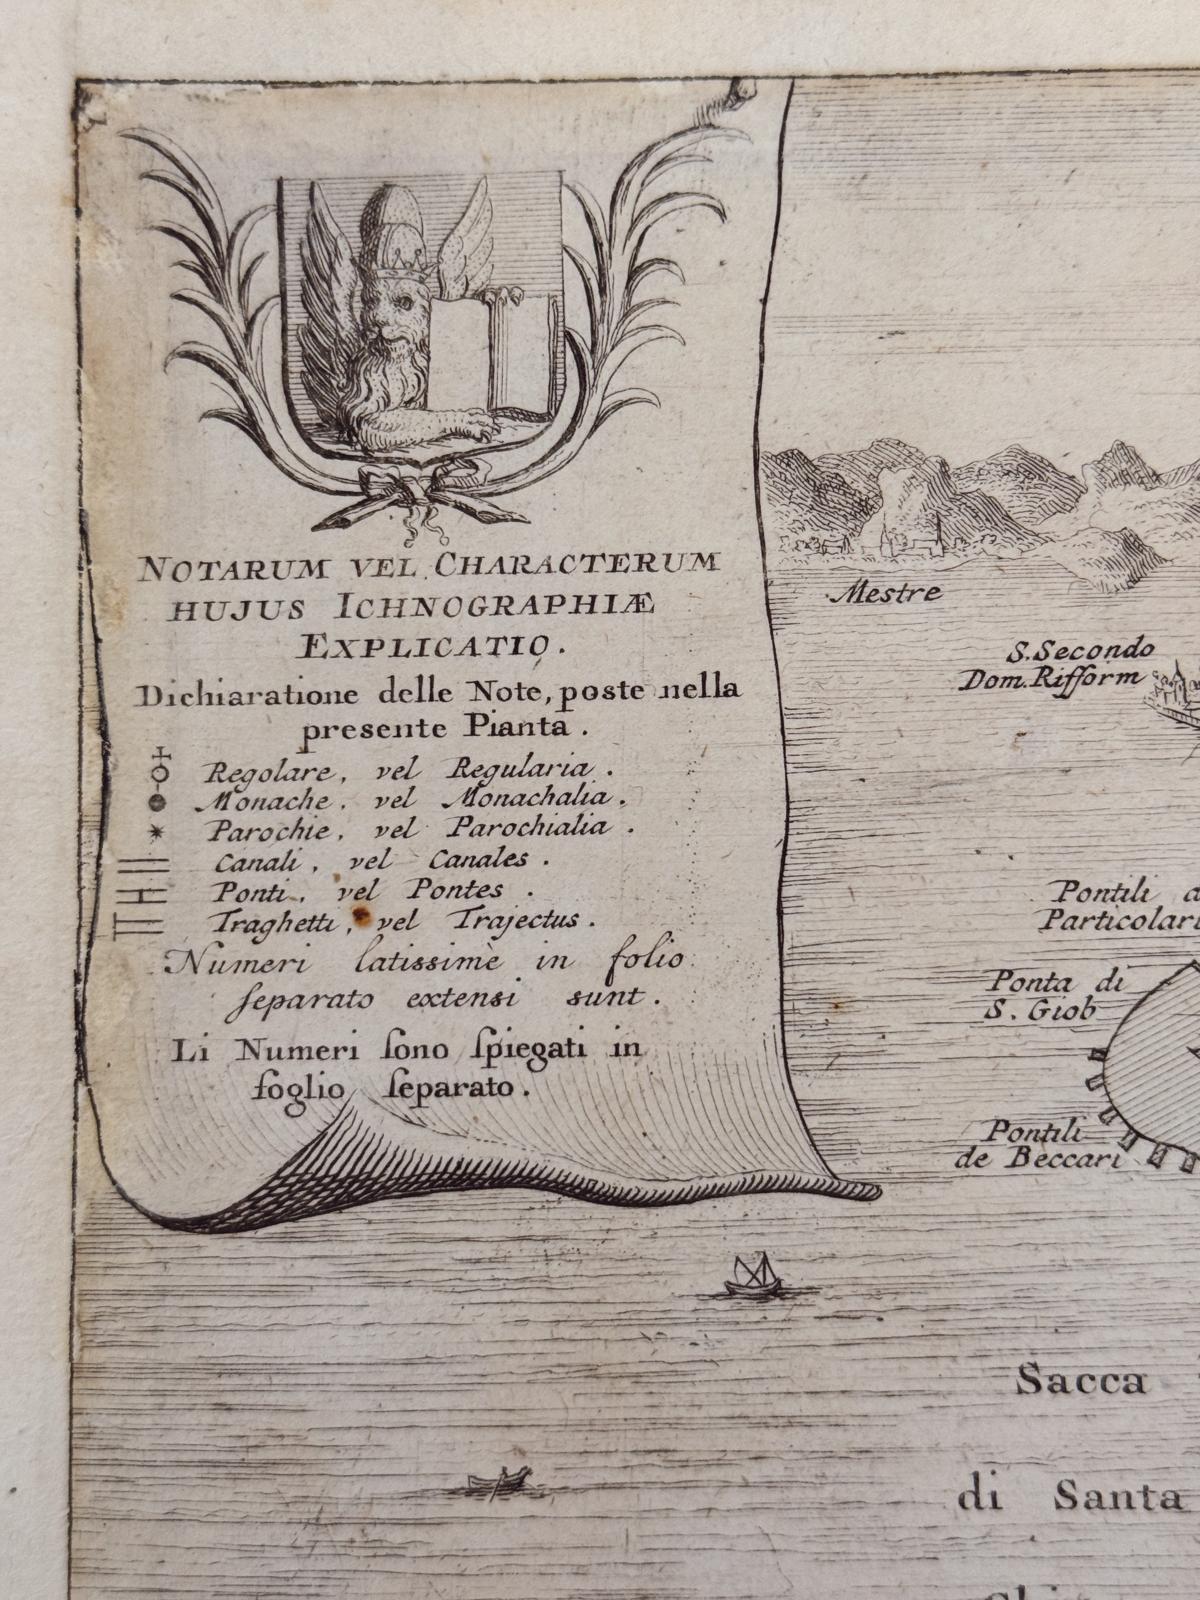 NOTARUM VEL CHARACTERUM
HUJUS ICHNOGRAPHIÆ
EXPLICATIO.
Dichiaratione delle Note, poste nella
presente Pianta.
Regolare, vel Regularia.
Monache, vel Monachalia.
Parochie, vel Parochialia.
Canali, vel Canales.
Ponti, vel Pontes.
Traghetti, vel Trajectus.
Numeri latissimè in folio
ſeparato extensi sunt.
Li Numeri ſono ſpiegati in
foglio ſeparato.
Mestre
S. Secondo
Dom. Rifform
Pontili a
Particolari
Ponta di
S. Giob
Pontili
de Beccari
Sacca
di Santa